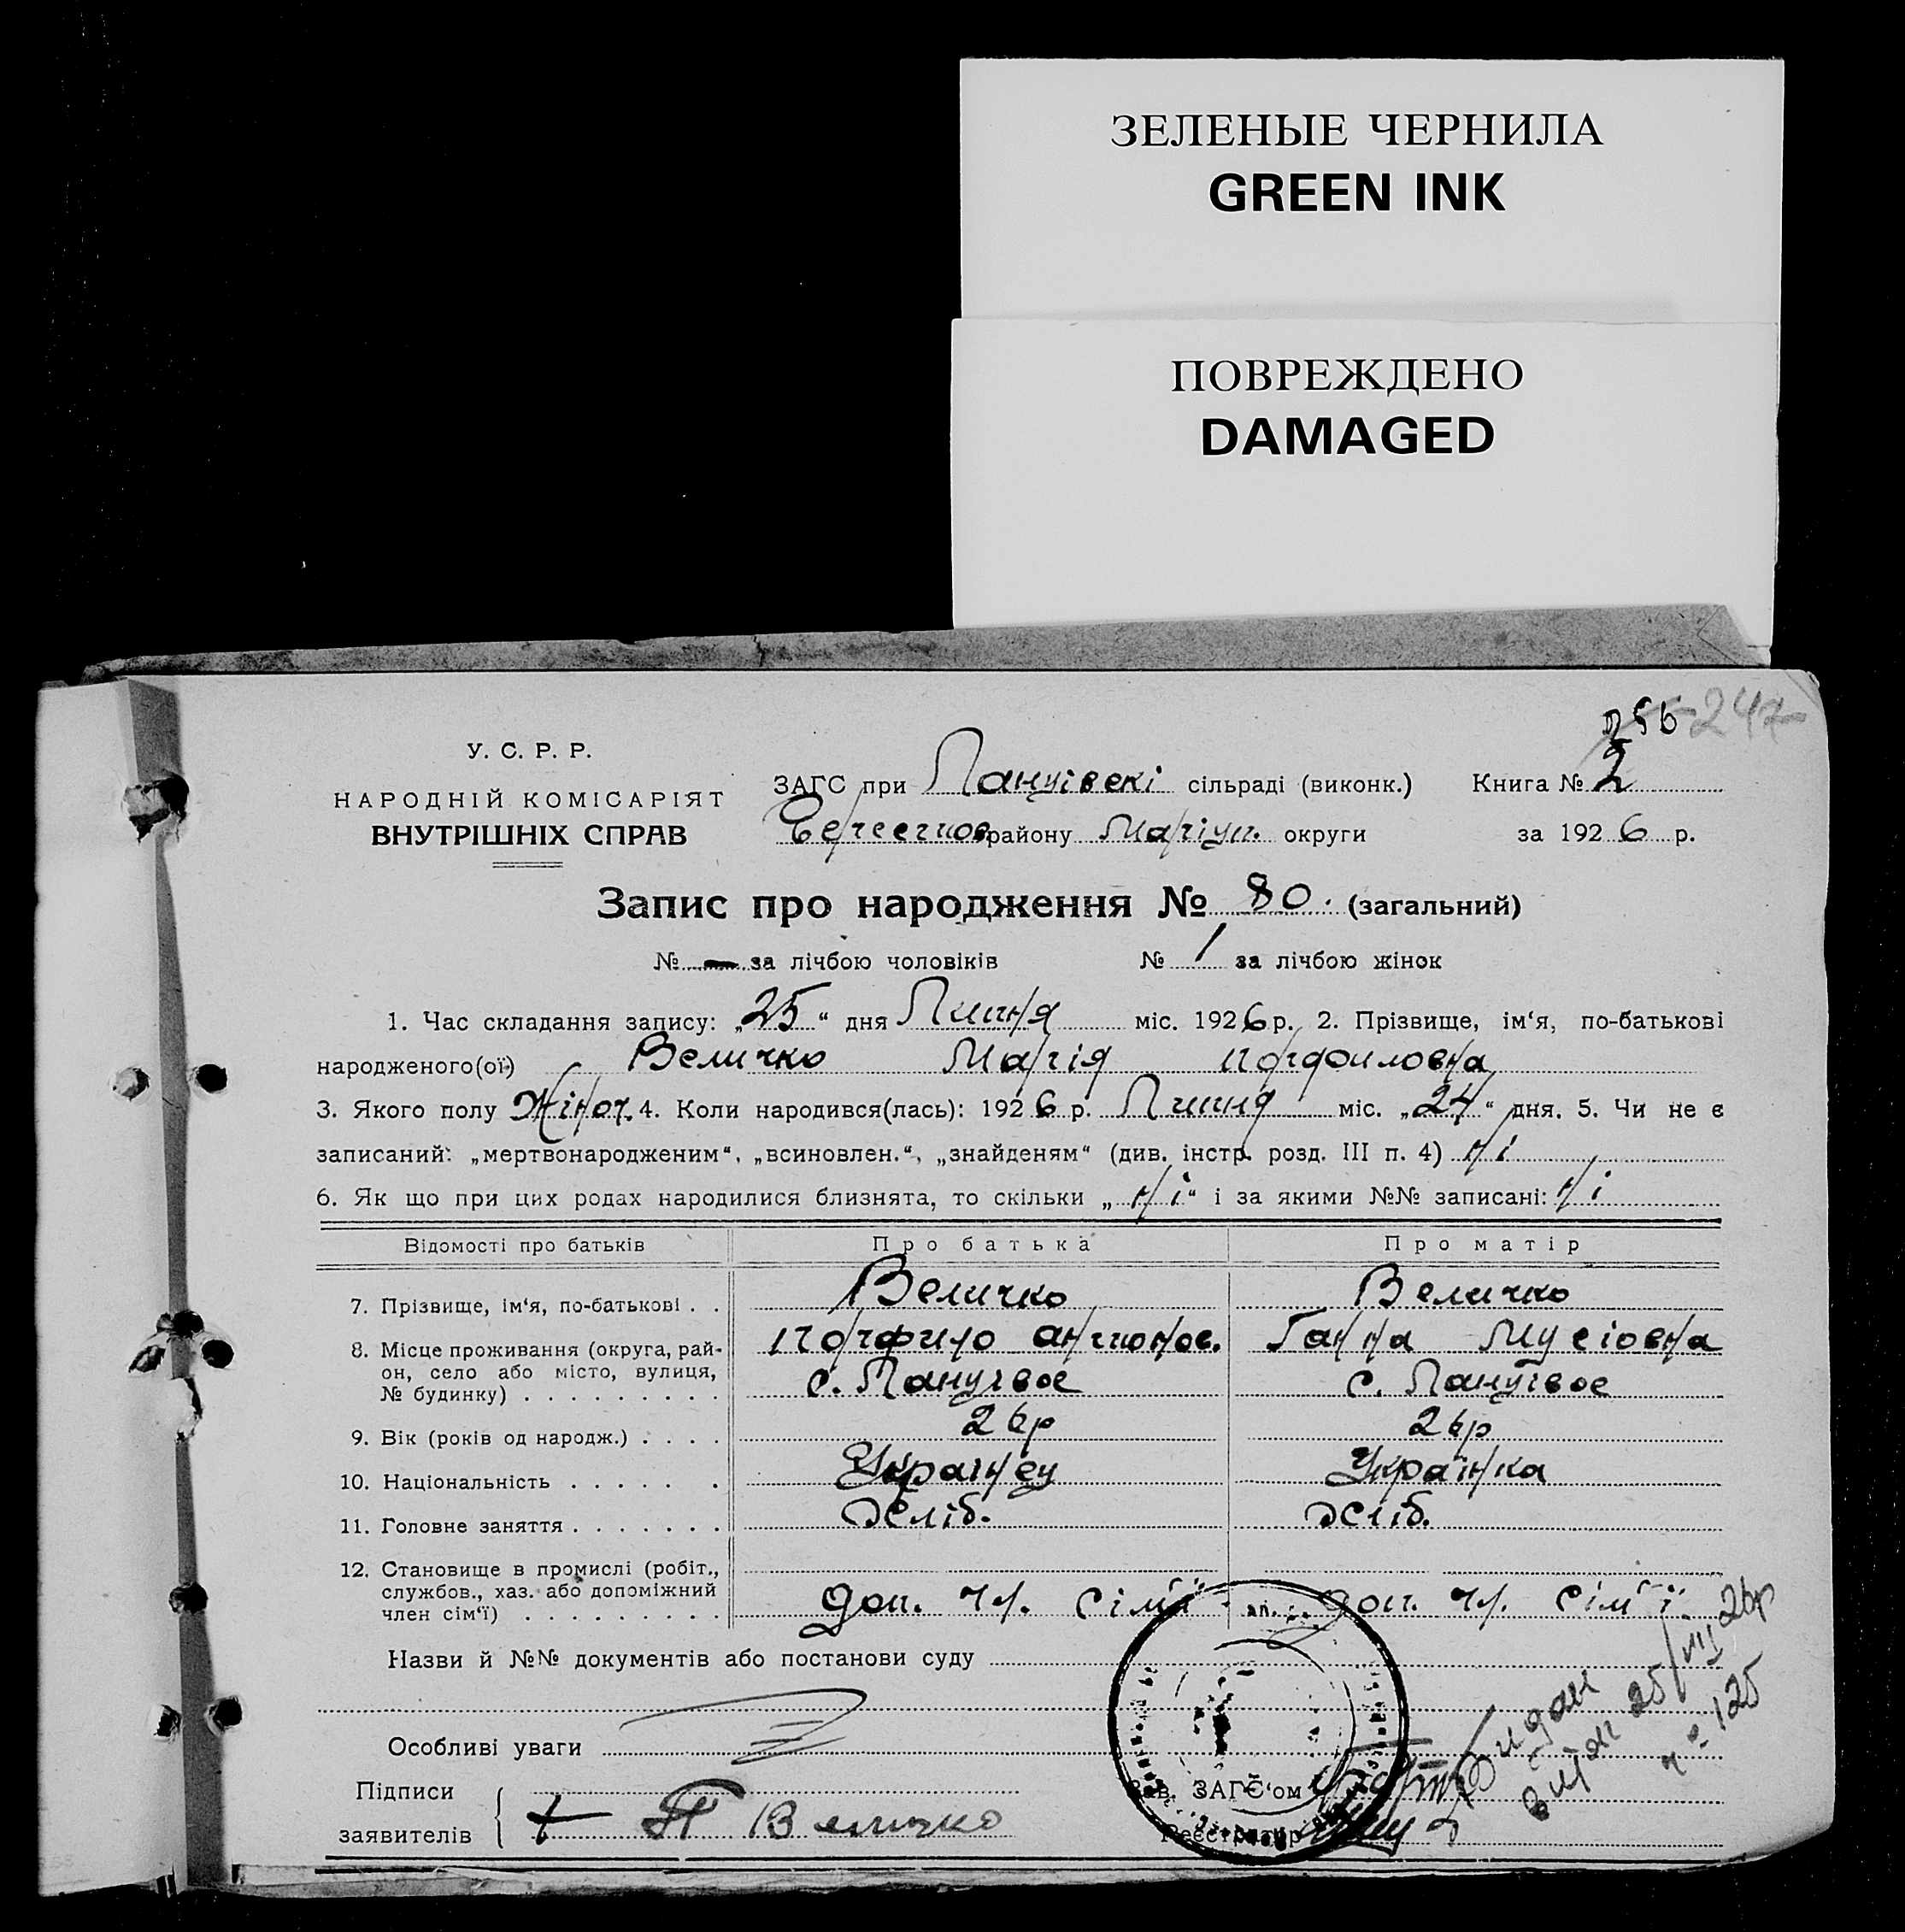 ЗЕЛЕНЫЕ ЧЕРНИЛА
GREEN INK
ПОВРЕЖДЕНО
DAMAGED
256 247
У. С. Р. Р.
НАРОДНІЙ КОМІСАРІЯТ
ВНУТРІШНІХ СПРАВ
ЗАГС при сільраді (виконк.) Книга № 2
району Маріуп. округи за 1926 р.
Запис про народження № 80. (загальний)
№ — за лічбою чоловіків № 1 за лічбою жінок
1. Час складання запису: „25“ дня Липня міс. 1926 р. 2. Прізвище, ім‘я, по-батькові
народженого(ої) Величко Марія
3. Якого полу Жіноч. 4. Коли народився(лась): 1926 р. Липня міс. „24“ дня. 5. Чи не є
записаний: „мертвонародженим“, „всиновлен.“, „знайденям“ (див. інстр. розд. III п. 4) ні
6. Як що при цих родах народилися близнята, то скільки „ні“ і за якими №№ записані: ні
Відомості про батьків Про батька Про матір
7. Прізвище, ім‘я, по-батькові . . Величко Величко
Ганна Мусіовна
8. Місце проживання (округа, район, село або місто, вулиця, № будинку) с. с.
9. Вік (років од народж.) . . . . 26р 26р
10. Національність . . . . . . Українец Українка
11. Головне заняття . . . . . . . Хліб. Хліб.
12. Становище в промислі (робіт., службов., хаз. або допоміжний член сім‘ї) . . . . . . . . . доп. чл. сім"ї доп. чл. сім"ї.
Назви й №№ документів або постанови суду
Особливі уваги
Підписи
заявителів + П Величко
Зав. ЗАГС‘ом
Реєстратур
25/VII 26р
№ 125